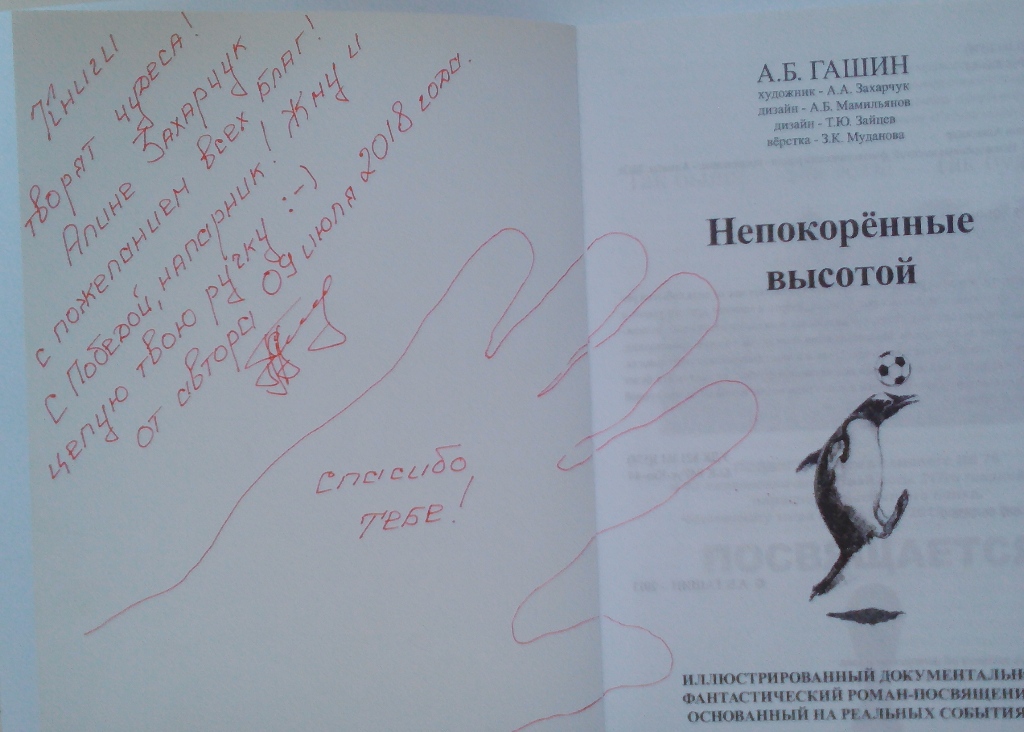 Книги
творят чудеса!
Алине Захарчук
с пожеланием всех благ!
С Победой, напарник! Жму и
целую твою ручку :-)
от автора 09 июля 2018 года.
спасибо
ТЕБЕ!
А.Б. ГАШИН
художник - А.А. Захарчук
дизайн - А.Б. Мамильянов
дизайн - Т.Ю. Зайцев
вёрстка - З.К. Муданова
Непокорённые
высотой
ИЛЛЮСТРИРОВАННЫЙ ДОКУМЕНТАЛЬН
ФАНТАСТИЧЕСКИЙ РОМАН-ПОСВЯЩЕНИ
ОСНОВАННЫЙ НА РЕАЛЬНЫХ СОБЫТИЯ
ПОСВЯЩАЕТСЯ